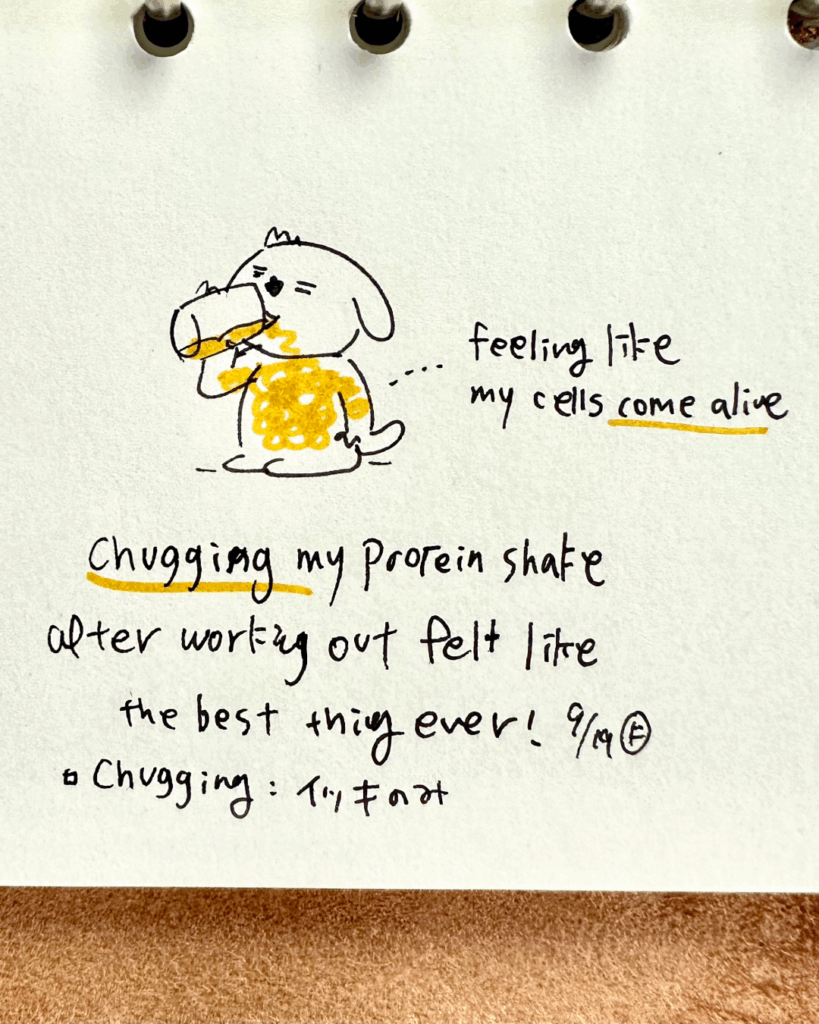 feeling like
my cells come alive
Chugging my protein shake
after working out felt like
the best thing ever! 9/19 Ⓕ
▫ Chugging : イッキのみ